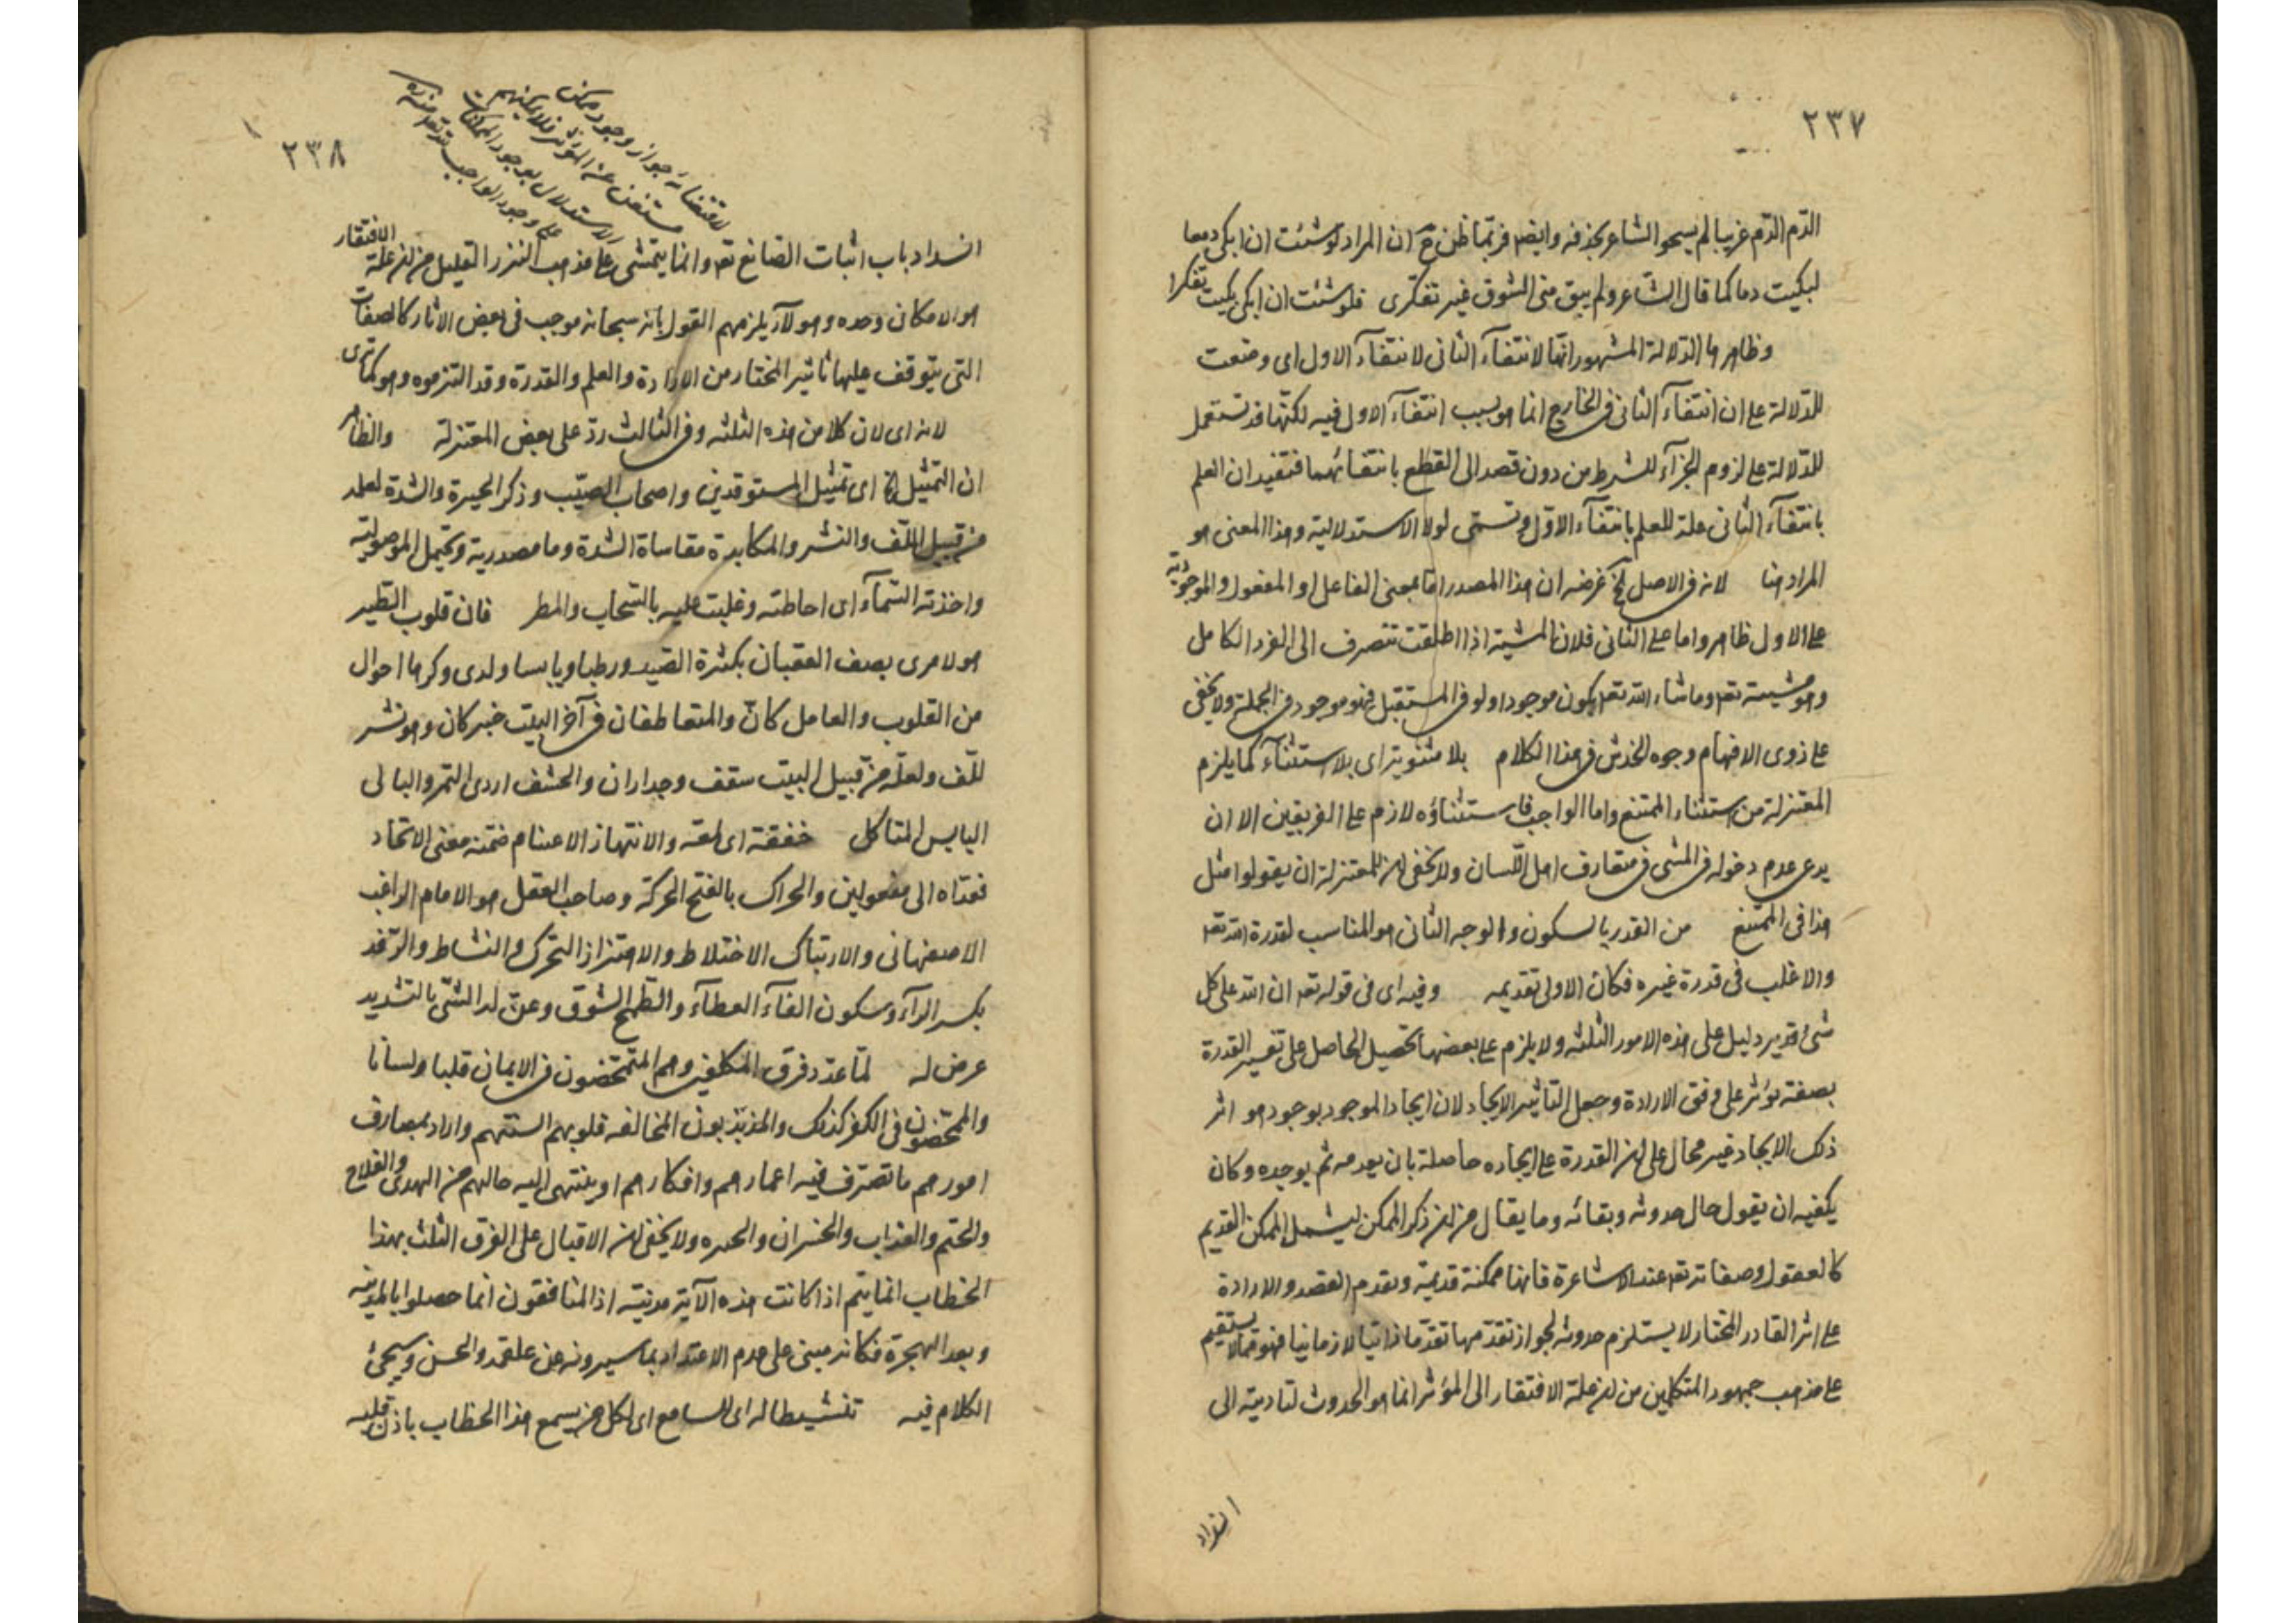 ٢٣٧
الدّم الدّم غريبا لم يسمح الشاعر بحذفه وايضا فربّما ظن ح ان المراد لو شئت ان ابكى دمعا
لبكيت دما كما قال الشاعر ولم يبق منى الشوق غير تفكرى فلو شئت ان ابكى بكيت تفكرا
وظاهرها الدّلالة المشهور انّها لانتفآء الثانى لانتفآء الاول اى وضعت
للدّلالة على ان انتفآء الثانى فى الخارج انما هو بسبب انتفآء الاول فيه لكنّها قد تستعمل
للدّلالة على لزوم الجزآء للشرط من دون قصد الى القطع بانتفائهما فتفيد ان العلم
بانتفآء الثانى علة للعلم بانتفآء الاوّل وتسمى لو الاستدلالية وهذا المعنى هو
المراد هنا لانه فى الاصل الخ غرضه ان هذا المصدر اما بمعنى الفاعل او المفعول والموجودية
على الاول ظاهر واما على الثانى فلان المشية اذا اطلقت تنصرف الى الفرد الكامل
وهو مشيته تعه وما شاء الله تعه يكون موجودا ولو فى المستقبل فهو موجود فى الجملة ولا يخفى
على ذوى الافهام وجوه الخدش فى هذا الكلام بلا مثنوية اى بلا استثنآء كما يلزم
المعتزلة من استثناء الممتنع واما الواجب فاستثناؤه لازم على الفريقين الا ان
يدعى عدم دخوله فى المشى فى متعارف اهل اللّسان ولا يخفى ان للمعتزلة ان يقولوا مثل
هذا فى الممتنع من القدر بالسكون والوجه الثانى هو المناسب لقدرة الله تعه
والاغلب فى قدرة غيره فكان الاولى تقديمه وفيه اى فى قوله تعه ان الله على كل
شئ قدير دليل على هذه الامور الثلثه ولا يلزم على بعضها تحصيل الحاصل على تفسير القدرة
بصفة تؤثر على وفق الارادة وجعل التأثير الايجاد لان ايجاد الموجود بوجود هو اثر
ذلك الايجاد غير محال على ان القدرة على ايجاده حاصلة بان يعدمه ثم يوجده وكان
يكفيه ان يقول حال حدوثه وبقائه وما يقال من ان ذكر الممكن ليشمل الممكن القديم
كالعقول وصفاته تعه عند الاشاعرة فانها ممكنة قديمة وتقدم القصد والارادة
على اثر القادر المختار لا يستلزم حدوثه لجواز تقدّمها تقدّما ذاتيا لا زمانيا فهو مما لا يستقيم
على مذهب جمهور المتكلمين من ان علة الافتقار الى المؤثر انما هو الحدوث لتاديته الى
انسداد
٢٣٨
لاقتضائه جواز وجود ممكن
مستغن عن المؤثر فلا يمكنهم
الاستدلال بوجود الممكنات
على وجود الواجب تعه منه ره
انسداد باب اثبات الصانع تعه وانما يتمشى على مذهب النزر القليل من ان علة الافتقار
هو الامكان وحده وهولآء يلزمهم القول بانه سبحانه موجب فى بعض الاثار كالصفات
التى يتوقف عليها تاثير المختار من الارادة والعلم والقدرة وقد التزموه وهو كما ترى
لانه اى لان كلا من هذه الثلثه وفى الثالث ردّ على بعض المعتزلة والظاهر
ان التمثيل الخ اى تمثيل المستوقدين واصحاب الصيّب وذكر الحيرة والشدة لعله
من قبيل اللّف والنشر والمكابدة مقاساة الشدة وما مصدرية وتحتمل الموصولية
واخذته السّمآء اى احاطته وغلبت عليه بالسّحاب والمطر فان قلوب الطير
هو لامرى يصف العقبان بكثرة الصّيد ورطبا ويابسا ولدى وكرها احوال
من القلوب والعامل كانّ والمتعاطفان فى آخر البيت خبر كان وهو نشر
للّف ولعلّه من قبيل البيت سقف وجداران والحشف اردى التمر والبالى
اليابس المتاكل خفقة اى لمعة والانتهاز الاغتنام ضمّنه معنى الاتخاذ
فعدّاه الى مفعولين والحراك بالفتح الحركة وصاحب العقل هو الامام الراغب
الاصفهانى والارتباك الاختلاط والاهتزاز التحرك والنشاط والرّفد
بكسر الرآء وسكون الفآء العطآء والطمح الشوق وعنّ له الشئ بالتشديد
عرض له لمّا عدّد فرق المكلفين وهم المتمحّضون فى الايمان قلبا ولسانا
والمتمحضون فى الكفر كذلك والمذبذبون المخالفه قلوبهم السنتهم واراد بمصارف
امورهم ما تصرّف فيه اعمارهم وافكارهم او ينتهى اليه حالهم من الهدى والفلاح
والختم والعذاب والخسران والحيره ولا يخفى ان الاقبال على الفرق الثلث بهذا
الخطاب انما يتم اذا كانت هذه الآية مدنيّة اذ المنافقون انما حصلوا بالمدينه
وبعد الهجرة فكانه مبنى على عدم الاعتداد بما سيرونه عن علقمه والحسن وسيجئ
الكلام فيه تنشيطا له اى للسامع اى لكل من يسمع هذا الخطاب باذن قلبه